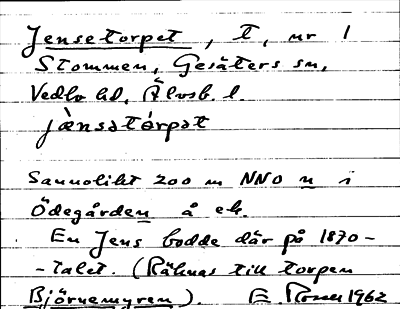 Jensetorpet, t, nr 1
Stommen, Gesäters sn,
Vedbo hd, Älvsb. l.
jæ̀nsətórpət
Sannolikt 200 m NNO n i
Ödegården å ek.
En Jens bodde där på 1870-
-talet. (Räknas till torpen
Björnemyren). E. 1962